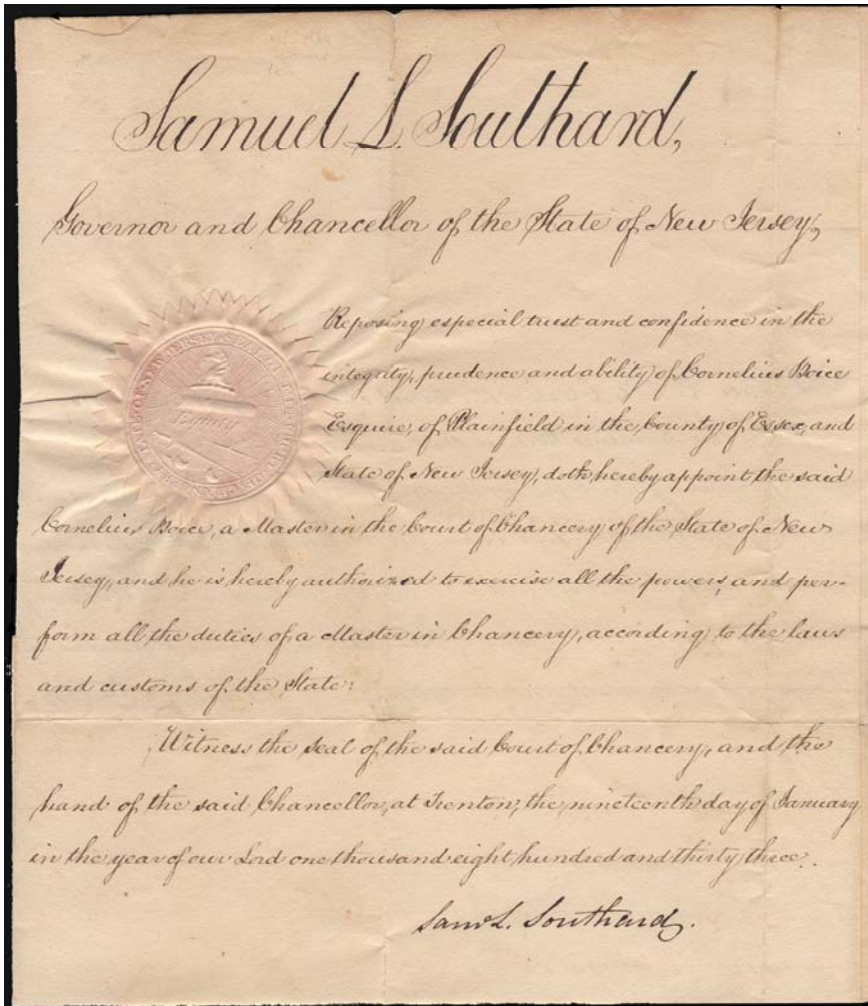 Samuel L. Southard,
Governor and Chancellor of the State of New Jersey,
Reposing especial trust and confidence in the
integrity, prudence and ability of Cornelius Boice
Esquire, of Plainfield in the County of Essex, and
State of New Jersey, doth hereby appoint the said
Cornelius Boice, a Master in the Court of Chancery of the State of New
Jersey, and he is hereby authorized to exercise all the powers, and per-
form all the duties of a Master in Chancery, according to the laws
and customs of the State:
Witness the seal of the said Court of Chancery, and the
hand of the said Chancellor, at Trenton, the nineteenth day of January
in the year of our Lord one thousand eight hundred and thirty three.
Saml. L. Southard.
Equity